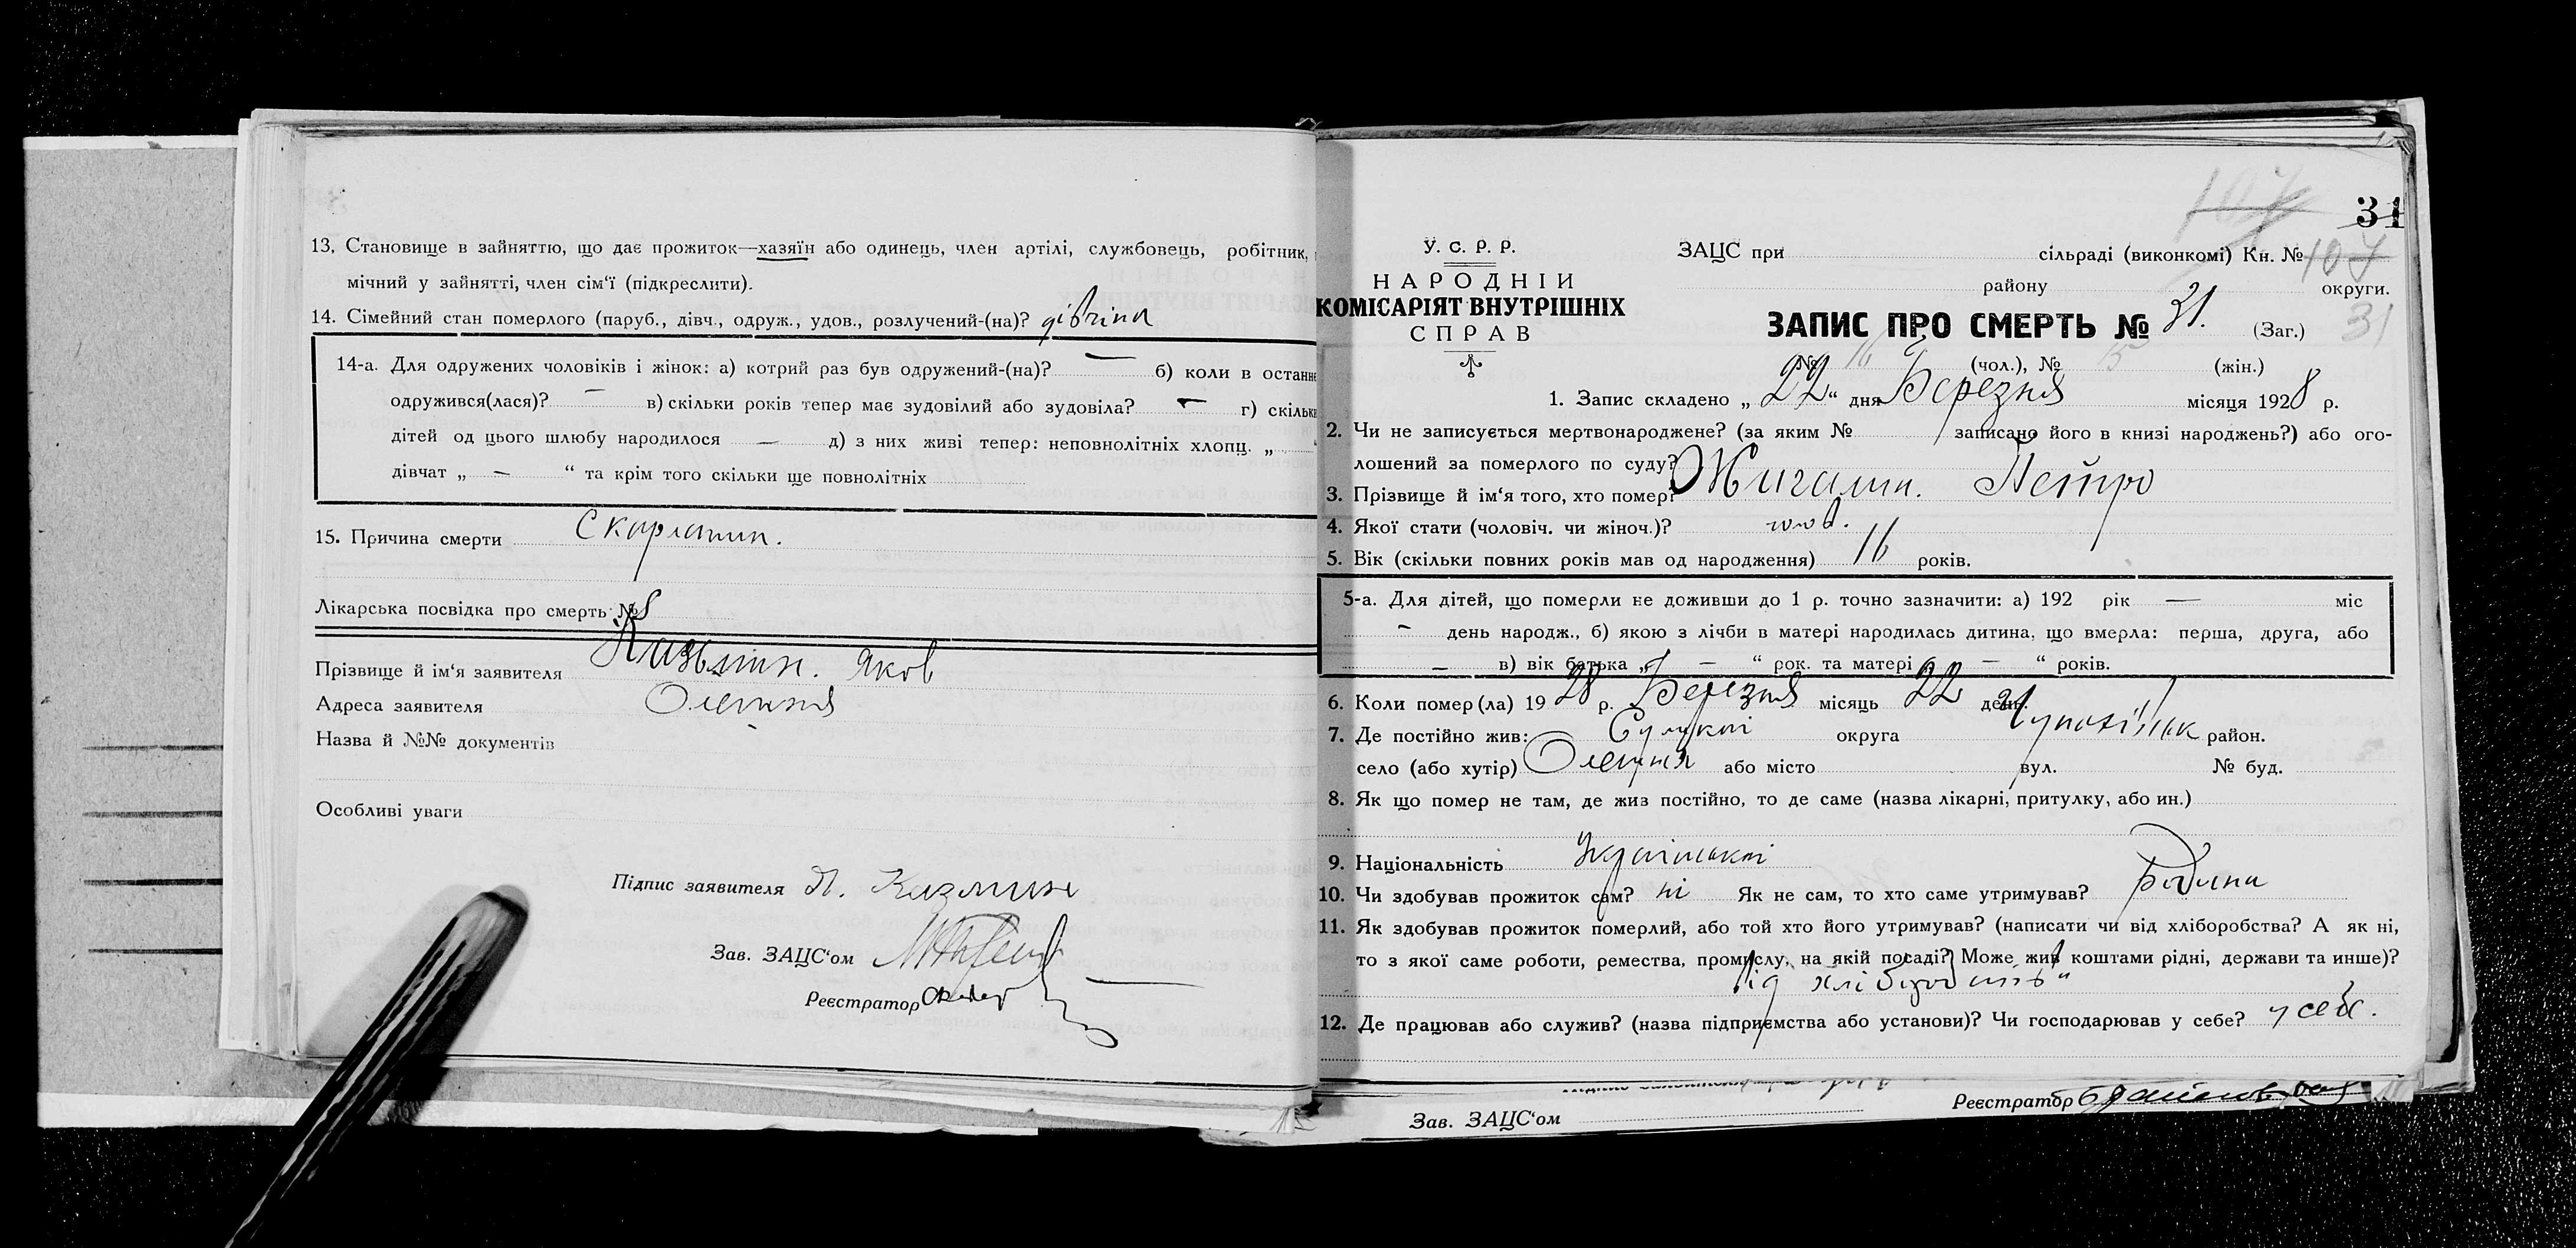 13. Становище в зайняттю, що дає прожиток—хазяїн або одинець, член артілі, службовець, робітник,
мічний у зайнятті, член сім‘ї (підкреслити).
14. Сімейний стан померлого (паруб., дівч., одруж., удов., розлучений-(на)? дівчина
14-а. Для одружених чоловіків і жінок: а) котрий раз був одружений-(на)? — б) коли в останнє
одружився(лася)? — в) скільки років тепер має зудовілий або зудовіла? — г) скільки
дітей од цього шлюбу народилося — д) з них живі тепер: неповнолітніх хлопц. „
дівчат „ — “ та крім того скільки ще повнолітніх
15. Причина смерти Скарлатин.
Лікарська посвідка про смерть № 8
Прізвище й ім‘я заявителя Казьмин. Яков
Адреса заявителя Олешня
Назва й №№ документів
Особливі уваги
Підпис заявителя Я. Казмин
Зав. ЗАЦС‘ом
Реєстратор
107
31
У. С. Р. Р.
НАРОДНІЙ
КОМІСАРІЯТ ВНУТРІШНІХ
СПРАВ
ЗАЦС при сільраді (виконкомі) Кн. № 107
району округи.
ЗАПИС ПРО СМЕРТЬ № 31. (Заг.) 31
№ 16 (чол.), № 15 (жін.)
1. Запис складено „ 22 “ дня Березня місяця 1928 р.
2. Чи не записується мертвонароджене? (за яким № записано його в книзі народжень?) або ого-
лошений за померлого по суду?
3. Прізвище й ім‘я того, хто помер? Жигалин. Петро
4. Якої стати (чоловіч. чи жіноч.)? чол.
5. Вік (скільки повних років мав од народження) 16 років.
5-а. Для дітей, що померли не доживши до 1 р. точно зазначити: а) 192 рік — міс
— день народж., б) якою з лічби в матері народилась дитина, що вмерла: перша, друга, або
— в) вік батька „ — “ рок. та матері „ — “ років.
6. Коли помер(ла) 1928 р. Березня місяць 22 день.
7. Де постійно жив: Сумської округа район.
село (або хутір) Олешня або місто вул. № буд.
8. Як що помер не там, де жив постійно, то де саме (назва лікарні, притулку, або ин.)
9. Національність Української
10. Чи здобував прожиток сам? ні Як не сам, то хто саме утримував? Родина
11. Як здобував прожиток померлий, або той хто його утримував? (написати чи від хліборобства? А як ні,
то з якої саме роботи, ремества, промислу, на якій посаді? Може жив коштами рідні, держави та инше)?
Від хліборобств"
12. Де працював або служив? (назва підприємства або установи)? Чи господарював у себе? у себе.
Зав. ЗАЦС‘ом
Реєстратор